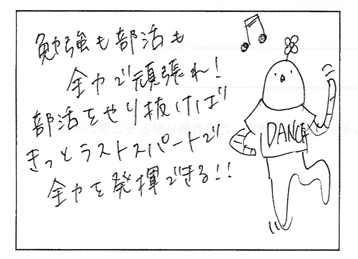 勉強も部活も
全力で頑張れ!
部活をやり抜けば
きっとラストスパートで
全力を発揮できる!!
DANCE